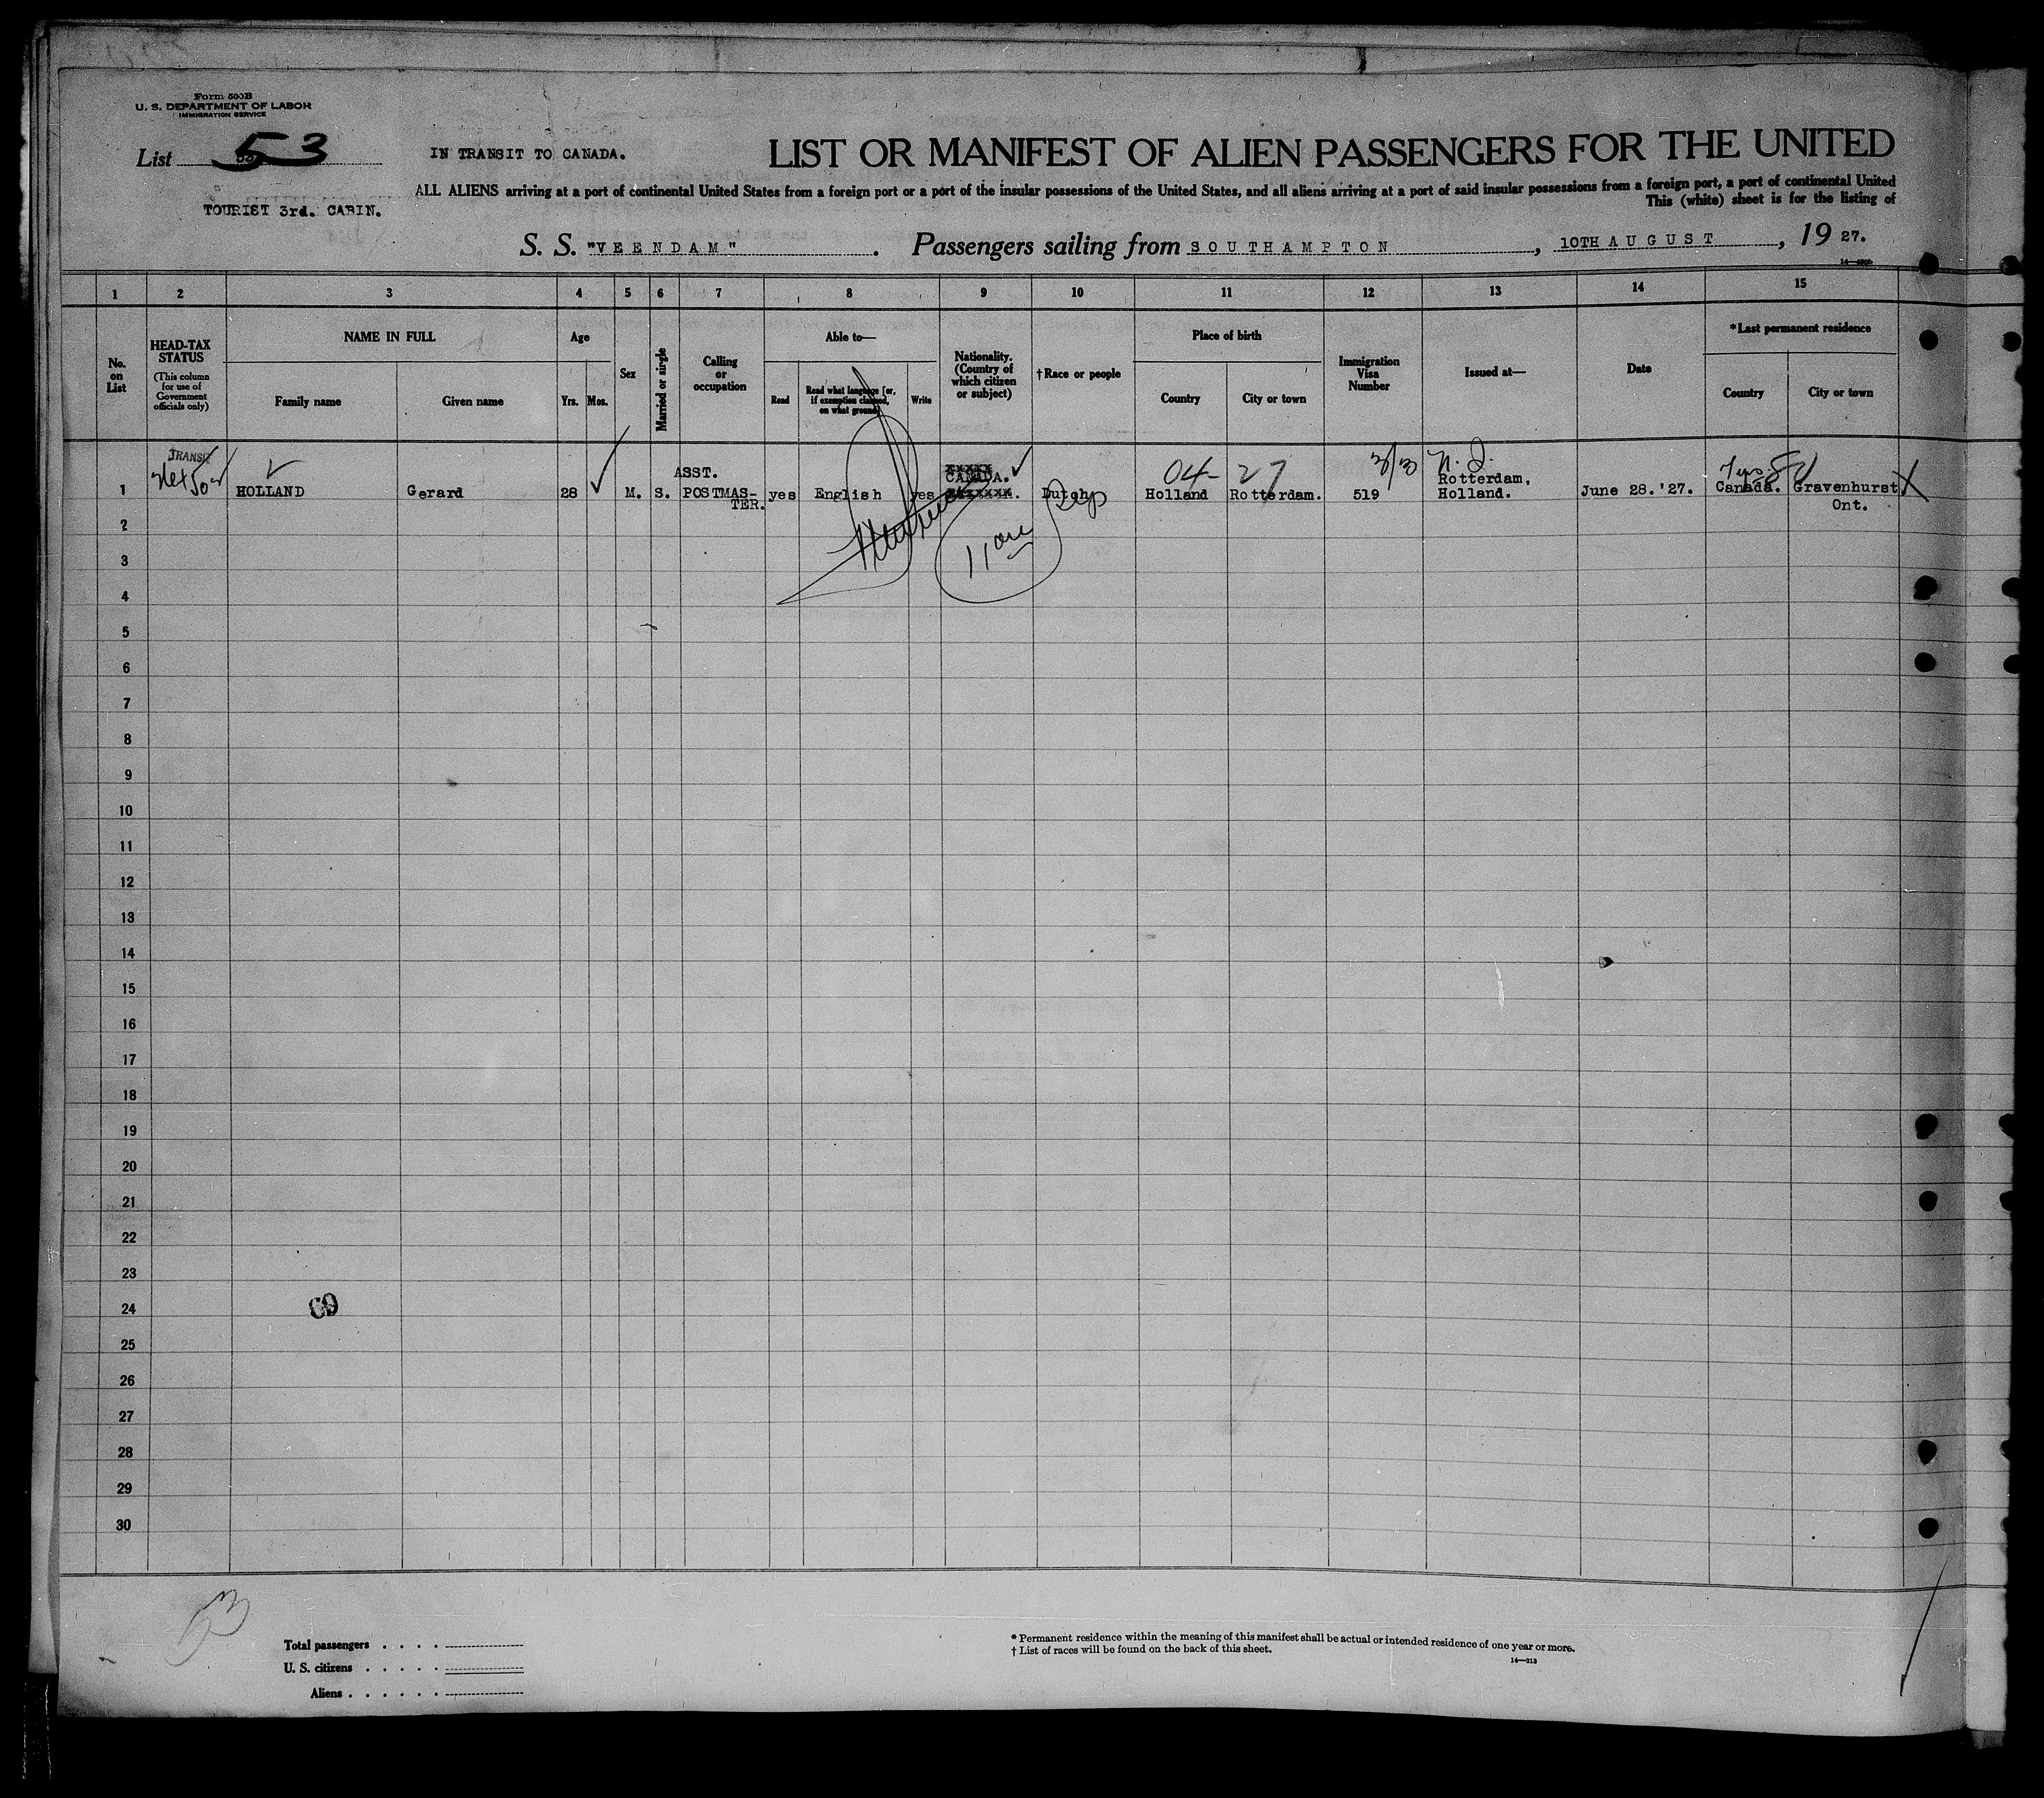 Form 500B
U. S. DEPARTMENT OF LABOR
IMMIGRATION SERVICE
List 53
IN TRANSIT TO CANADA.
LIST OR MANIFEST OF ALIEN PASSENGERS FOR THE UNITED
ALL ALIENS arriving at a port of continental United States from a foreign port or a port of the insular possessions of the United States, and all aliens arriving at a port of said insular possessions from a foreign port, a port of continental United
This (white) sheet is for the listing of
TOURIST 3rd. CABIN.
S. S. "VEENDAM" . Passengers sailing from SOUTHAMPTON , 10TH AUGUST , 19 27.
1 2 3 4 5 6 7 8 9 10 11 12 13 14 15
No. on List
HEAD-TAX STATUS
(This column for use of Government officials only)
NAME IN FULL
Family name
Given name
Age
Yrs.
Mos.
Sex
Married or single
Calling or occupation
Able to—
Read
Read what language [or, if exemption claimed, on what ground]
Write
Nationality. (Country of which citizen or subject)
†Race or people
Place of birth
Country
City or town
Immigration Visa Number
Issued at—
Date
*Last permanent residence
Country
City or town
TRANSIT
04- 27 3/3 N. I.
ASST. CANADA. Rotterdam,
1 HOLLAND Gerard 28 M. S. POSTMAS- yes English yes Dutch Holland Rotterdam. 519 Holland. June 28.'27. Canada. Gravenhurst
TER. Ont.
2
3
4
5
6
7
8
9
10
11
12
13
14
15
16
17
18
19
20
21
22
23
24
25
26
27
28
29
30
53
Total passengers . . . .
U. S. citizens . . . . .
Aliens . . . . . .
* Permanent residence within the meaning of this manifest shall be actual or intended residence of one year or more.
† List of races will be found on the back of this sheet.
14—213